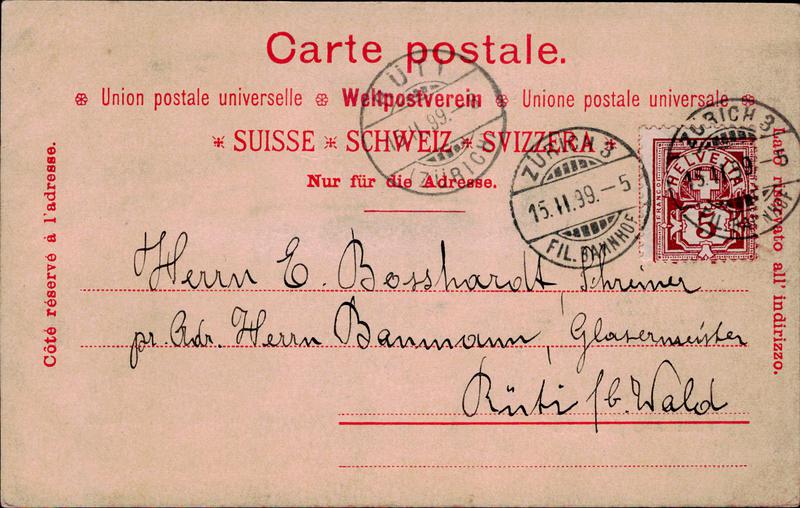 Carte postale.
Union postale universelle Weltpostverein Unione postale universale
SUISSE SCHWEIZ SVIZZERA
Nur für die Adresse.
Côté réservé à l'adresse.
Lato riservato all' indirizzo.
RÜTI
(ZÜRICH)
ZÜRICH 3
15.II.99.–5
FIL. BAHNHOF
ZÜRICH 3
FRANCO
HELVETIA
5
Herrn E. Bosshardt, Schreiner
pr. Adr. Herrn Baumann, Glasermeister
Rüti b. Wald